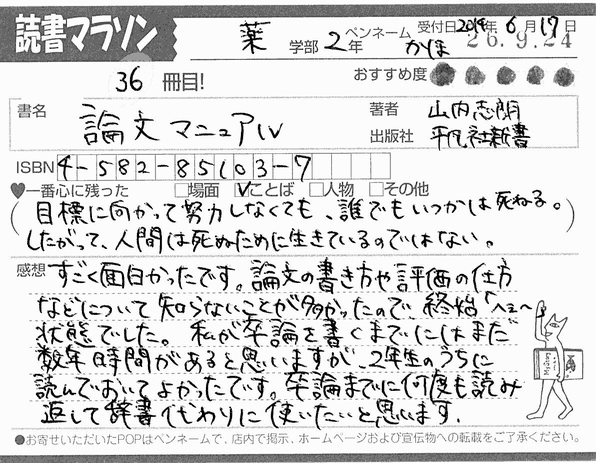 読書マラソン 薬 学部 2年 ペンネーム かほ 受付日2014年6月17日
26.9.24
36 冊目! おすすめ度
書名 論文マニュアル 著者 山内志朗
出版社 平凡社新書
ISBN 4-582-85103-7
♥一番心に残った □場面 ☑ことば □人物 □その他
(目標に向かって努力しなくても、誰でもいつかは死ねる。
したがって、人間は死ぬために生きているのではない。)
感想 すごく面白かったです。論文の書き方や評価の仕方
などについて知らないことが多かったので、終始「へぇ〜
状態でした。私が卒論を書くまでにはまだ
数年時間があると思いますが、2年生のうちに
読んでおいてよかったです。卒論までに何度も読み
返して辞書代わりに使いたいと思います.
●お寄せいただいたPOPはペンネームで、店内で掲示、ホームページおよび宣伝物への転載をご了承ください。